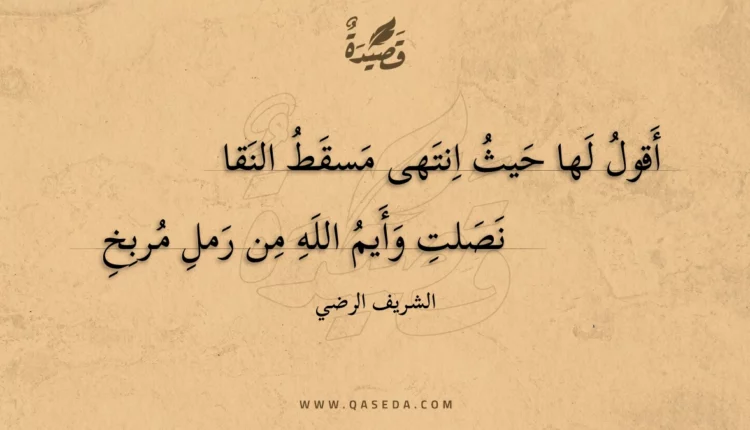 قَصِيْدَةٌ
أَقولُ لَها حَيثُ اِنتَهى مَسقَطُ النَقا
نَصَلتِ وَأَيمُ اللَهِ مِن رَملِ مُربِخِ
الشريف الرضي
WWW.QASEDA.COM